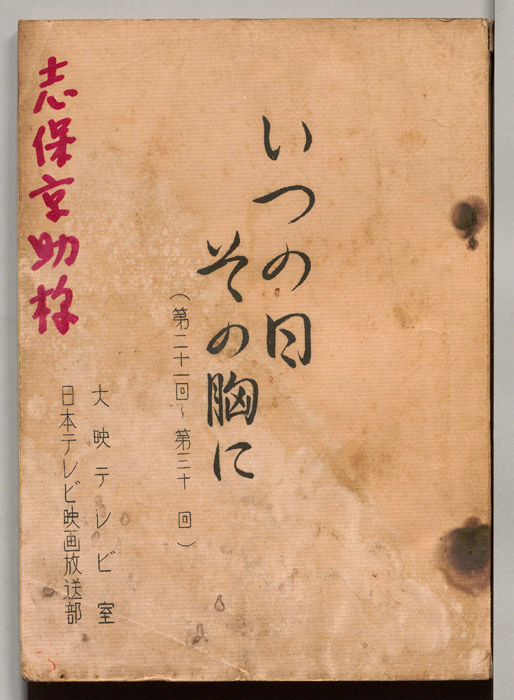 いつの日
その胸に
（第二十一回～第三十回）
大映テレビ室
日本テレビ映画放送部
志保京助様